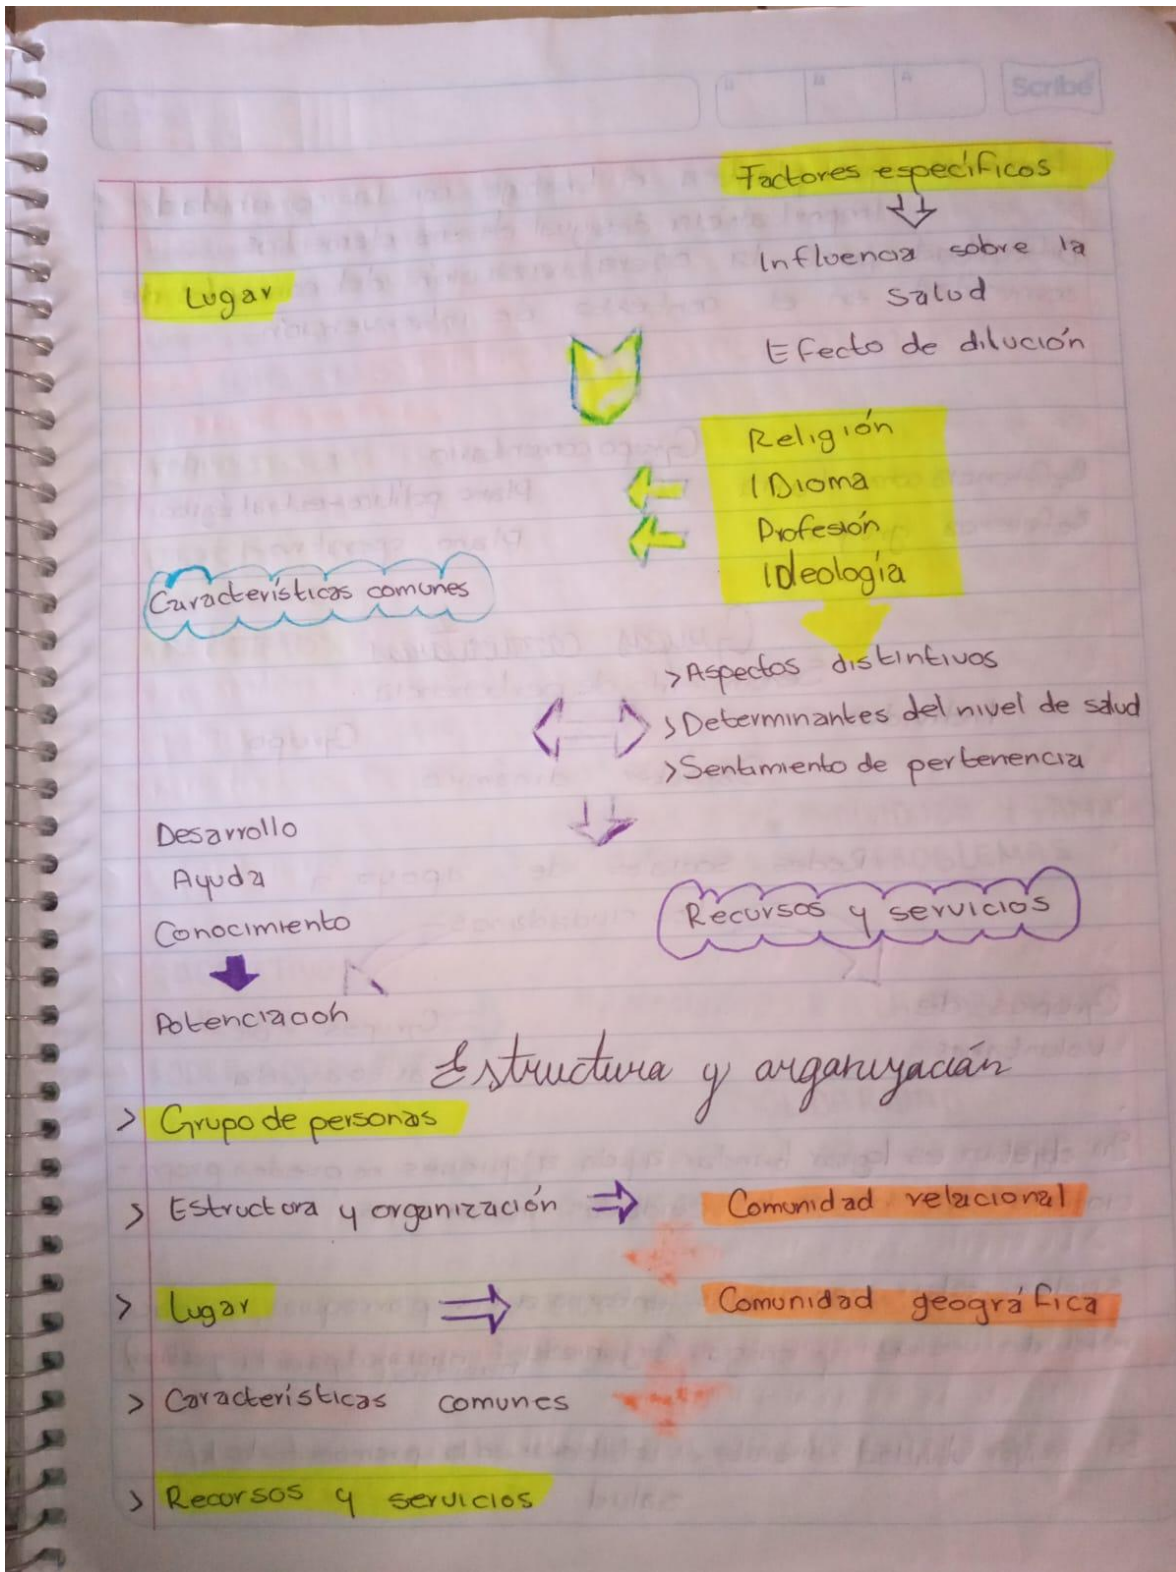 Scribe
Factores específicos
Influencia sobre la
salud
Lugar
Efecto de dilución
Religión
IDioma
Profesión
Ideología
Características comunes
>Aspectos distintivos
>Determinantes del nivel de salud
>Sentimiento de pertenencia
Desarrollo
Ayuda
Conocimiento
Recursos y servicios
Potenciación
Estructura y organización
> Grupo de personas
> Estructura y organización ⇒ Comunidad relacional
> Lugar ⇒ Comunidad geográfica
> Características comunes
> Recursos y servicios